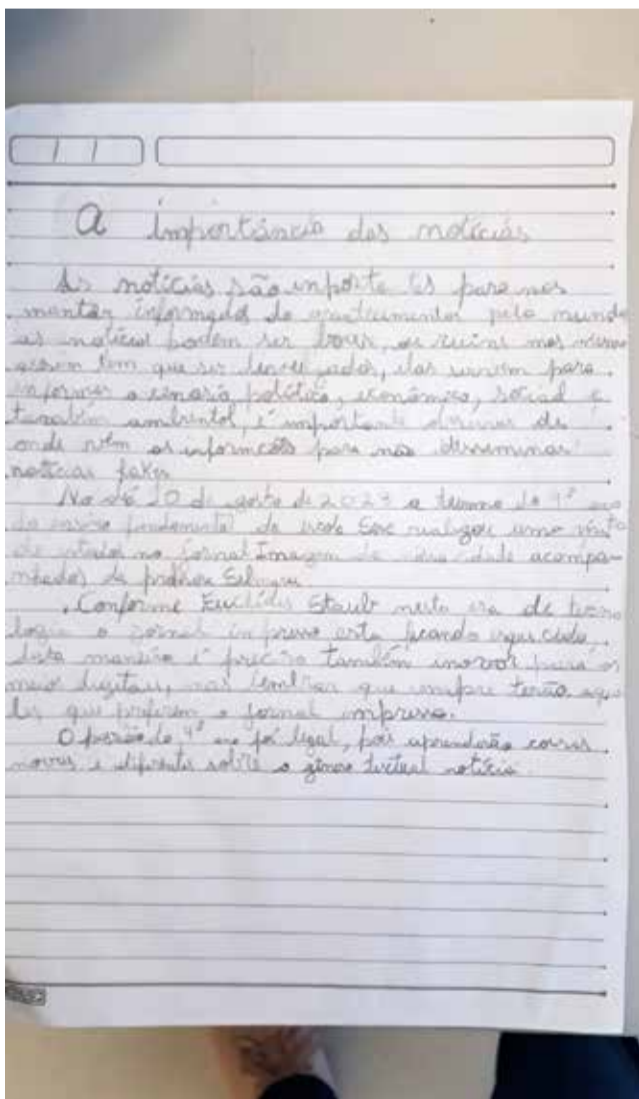 A importância das notícias
As notícias são importates para nos
manter informados de acontecimentos pelo mundo
as notícias podem ser boas, ou ruins mas mesmo
assim tem que ser, elas servem para
informar o cenário político, econômico, social e
também ambiental, é importante de
onde vêm as informações para não disseminar
notícias fakes
No dia 20 de agosto de 2023 a turma do 4º ano
do ensino fundamental da escola realizou uma visita
de estudos no jornal Imagem da cidade acompa-
nhados da
Conforme Euclides Staub nesta era de tecno
logia o jornal impresso esta ficando esquecido,
desta maneira é preciso também inovar para os
meios digitais, mas lembrar que sempre terão aque
les que preferem o jornal impresso.
O do 4º ano foi legal, pois aprenderão coisas
novas e diferentes sobre o gênero textual notícia.